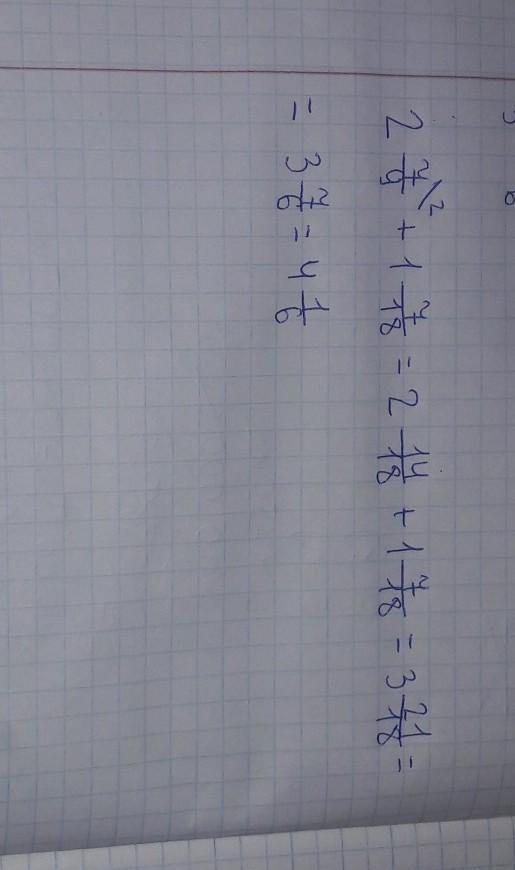 2 7/9 \2 + 1 7/18 = 2 14/18 + 1 7/18 = 3 21/18 =
= 3 7/6 = 4 1/6